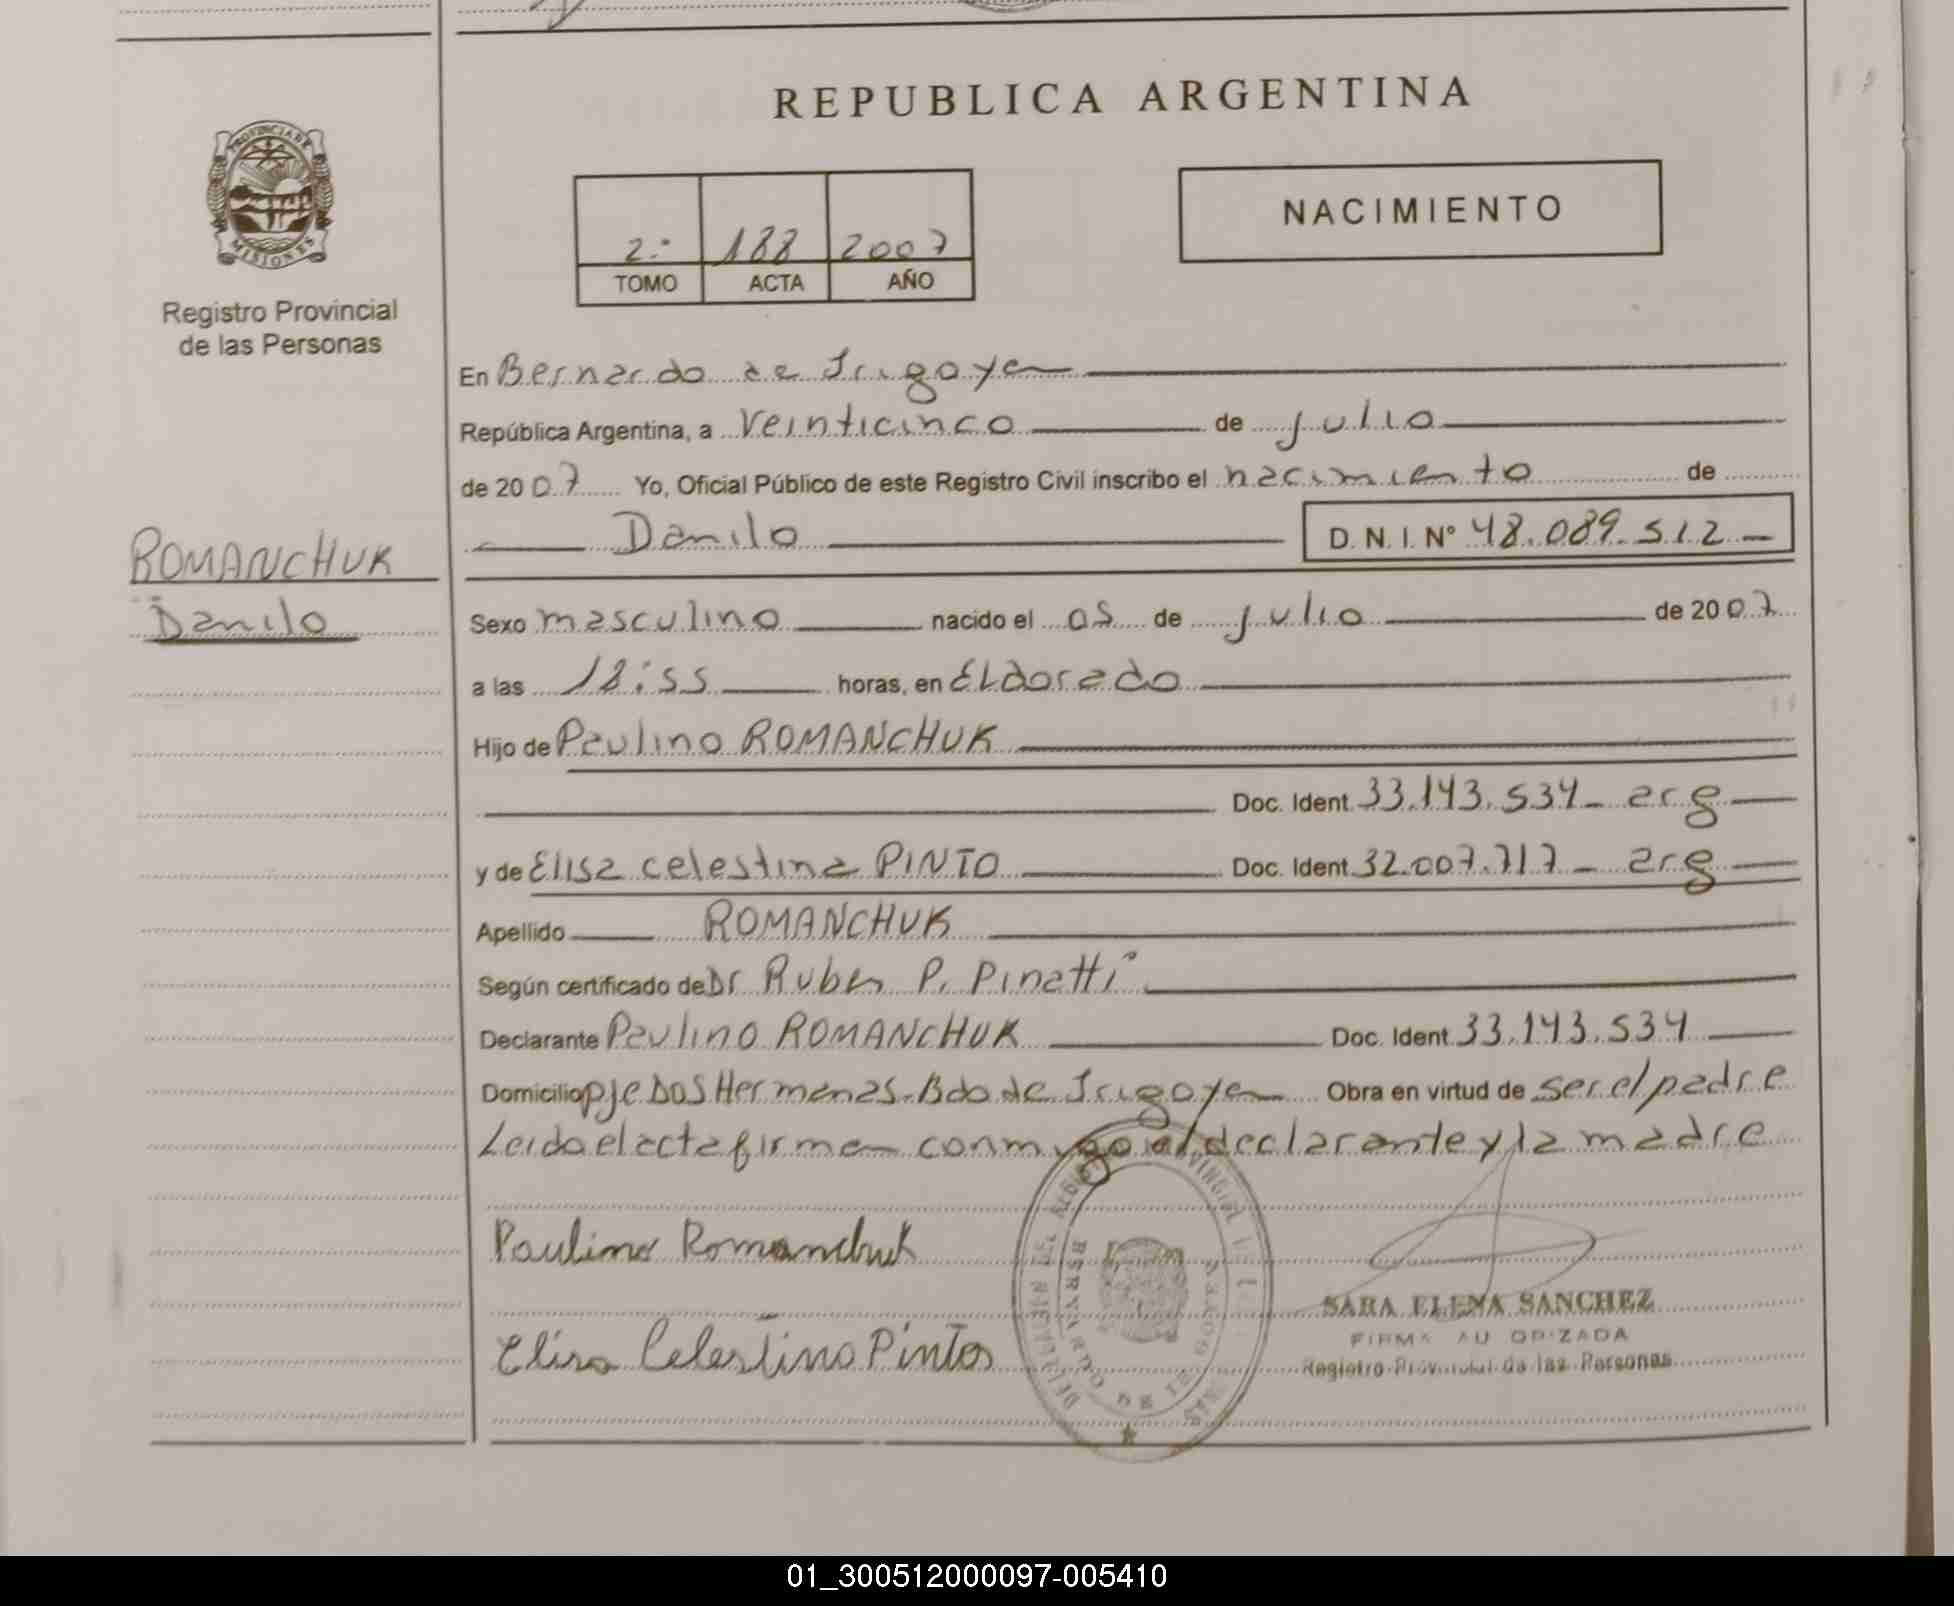 REPUBLICA ARGENTINA
PROVINCIA DE
MISIONES
Registro Provincial
de las Personas
2º 188 2007
TOMO ACTA AÑO
NACIMIENTO
En Bernardo de Irigoyen
República Argentina, a Veinticinco de julio
de 2007 Yo, Oficial Público de este Registro Civil inscribo el nacimiento de
Danilo D. N. I. Nº 48.089.512
ROMANCHUK
Danilo
Sexo masculino nacido el 05 de julio de 2007
a las 18:55 horas, en ELdorado
Hijo de Paulino ROMANCHUK
Doc. Ident. 33.143.534 - arg
y de Elisa celestina PINTO Doc. Ident. 32.007.717 - arg
Apellido ROMANCHUK
Según certificado de Dr Ruben P. Pinatti
Declarante Paulino ROMANCHUK Doc. Ident. 33.143.534
Domicilio pje Dos Hermanas - Bdo de Irigoyen Obra en virtud de ser el padre
Leido el acta firman conmigo el declarante y la madre
Paulino Romanchuk
Elisa Celestina Pinto
SARA ELENA SANCHEZ
FIRMA AUTORIZADA
Registro Provincial de las Personas
01_300512000097-005410